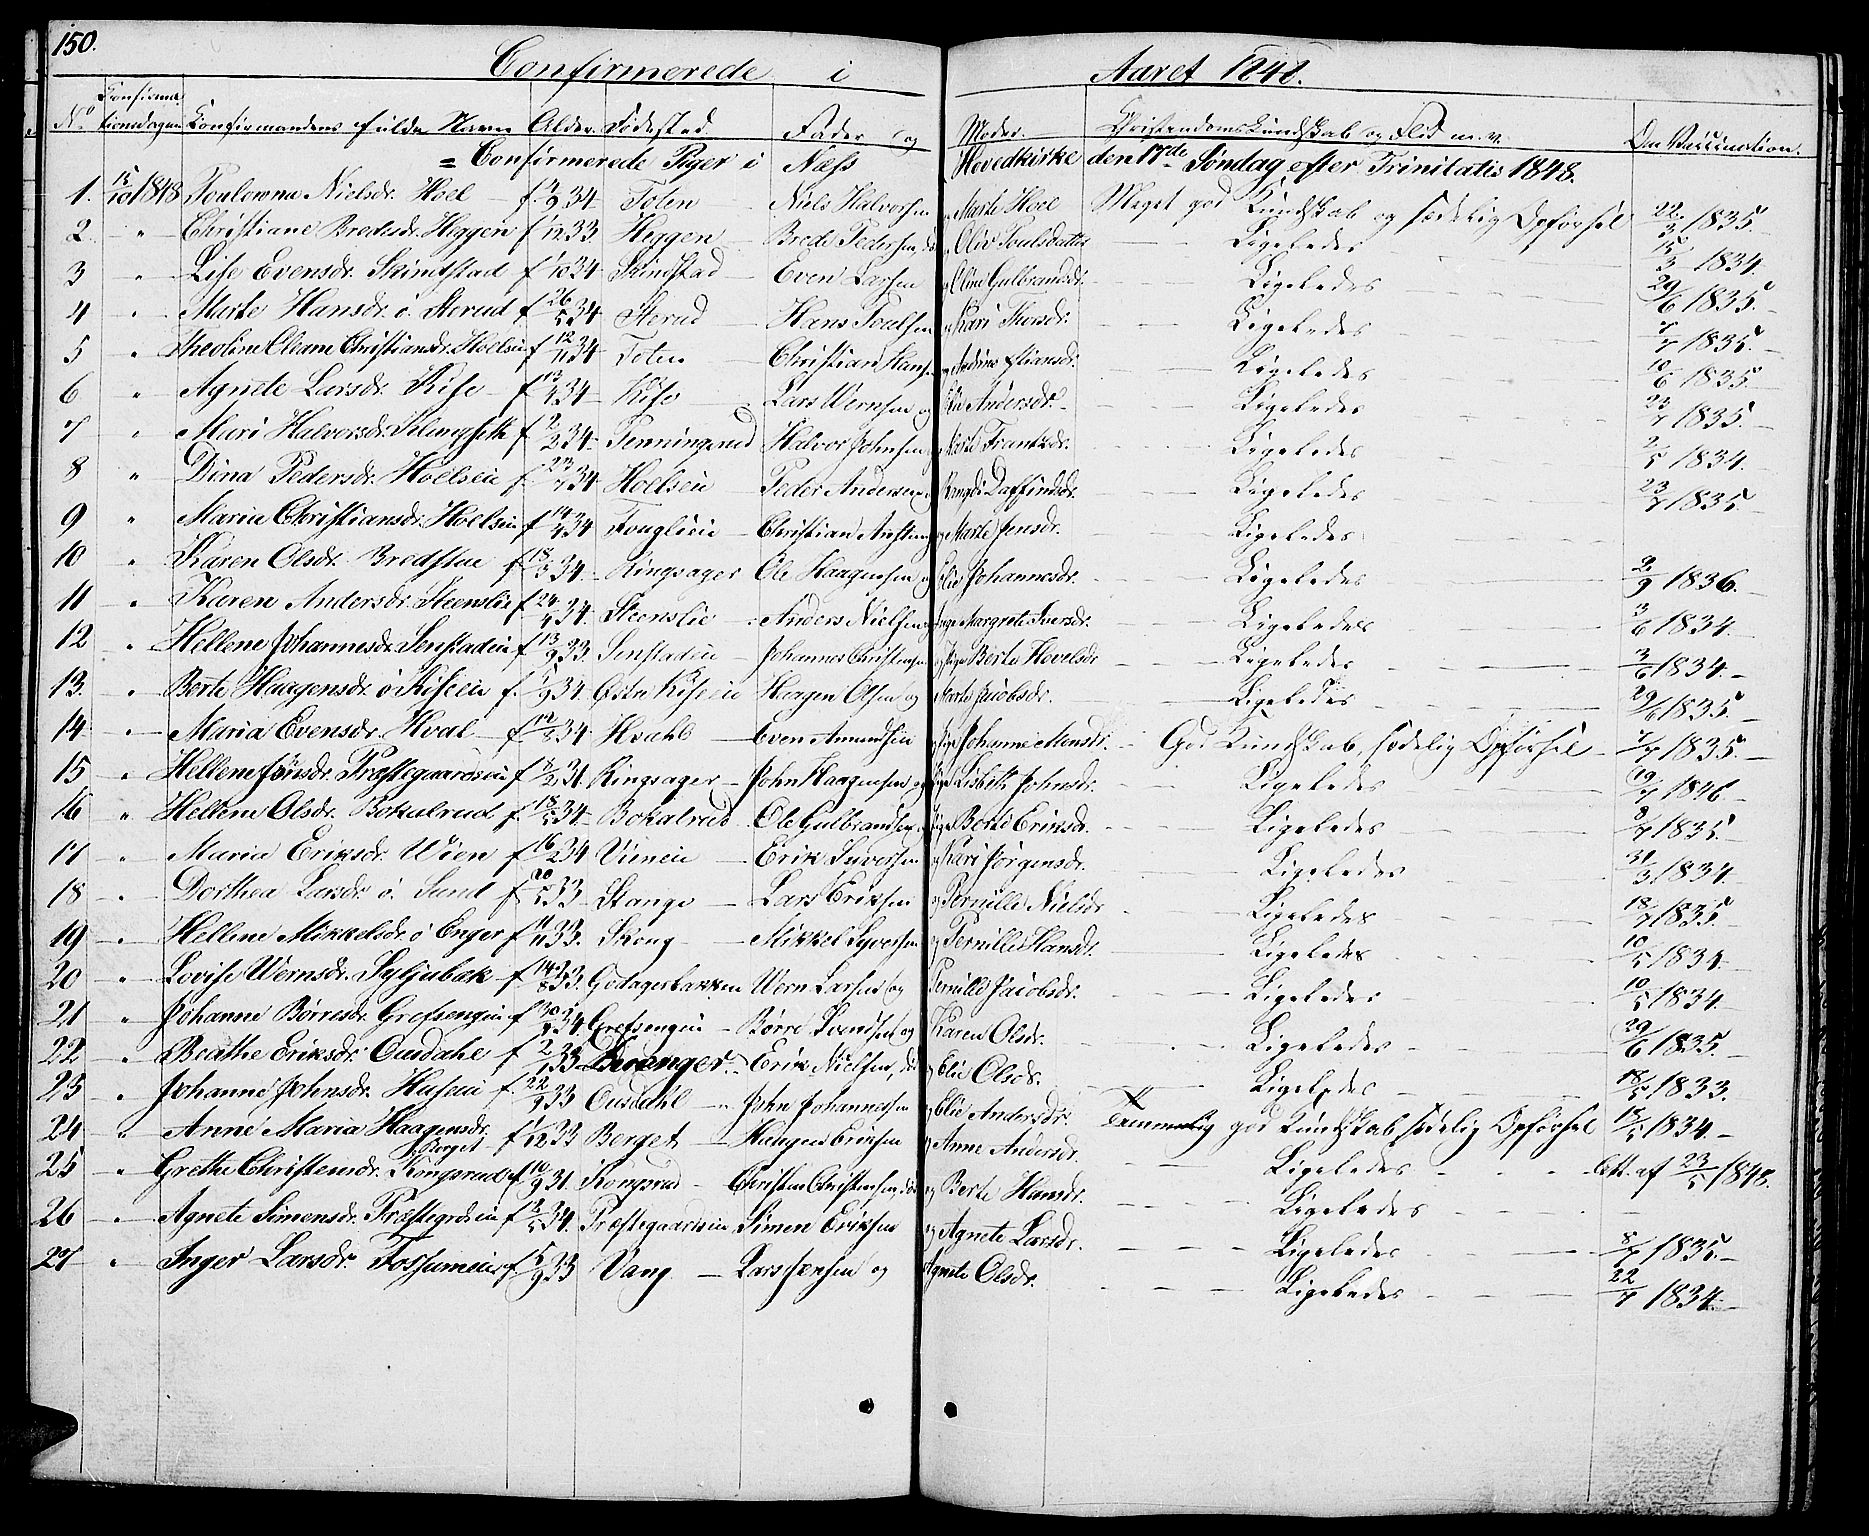 150.
Confirmerede i Aaret 1848.
No Confirmationsdagen Confirmandens fulde Navn Alder. Fødested. Fader og Moder. Christendoms Kundskab og Flid m. v. Om Vaccination.
= Confirmerede Piger i Næss Hovedkirke den 17de Søndag efter Trinitatis 1848.
1. 15/10 1848 Poulowna Nielsdr. Hoel f. /9 34 Toten Niels Halvorsen og Marte Hoel Meget god Kundskab og sædelig Opførsel 22/3 1835.
2 " Christiane Bredesdr. Heggen f /12 33. Heggen Brede Pedersen, og Oliv Poulsdatter Ligeledes 15/3 1834.
3 " Lise Evensdr. Skindstad f /10 34 Skindstad Even Larsen og Eline Gulbrandsdr. Ligeledes 29/6 1835.
4 " Marte Hansdr. ó. Sterud f 26/5 34 Sterud Hans Poulsen og Kari Thorsdr. Ligeledes 7/7 1835.
5 " Theoline Eleane Christiansdr. Hoelseie f 12/11 34 Toten Christian Hansen og Ligeledes 10/6 1835
6 " Agnete Larsdr. Rise f 13/4 34 Rise Lars Wernsen og Andersdr. Ligeledes 23/7 1835.
7 " Mari Halvorsdr. f 2/2 34 Penningsrud Halvor Johnsen og Marte Frantzdr. Ligeledes 2/5 1834.
8 " Dina Pedersdr. Hoelseie f. 23/7 34 Hoelseie Peder Andersen og Ragndi Daffindsdr. Ligeledes 23/7 1835.
9 " Marie Christiansdr. Hoelseie f 14/4 34 Fouglieie Christian og Marte Jensdr. Ligeledes
10 " Karen Olsdr. Bredstue f 18/3 34 Ringsager Ole Haagensen og Elie Johannesdr. Ligeledes 2/9 1836.
11 " Karen Andersdr. Steenslie f 24/4 34 Steenslie Anders Nielsen og Inge Margrete Iversdr. Ligeledes 3/6 1834.
12 " Hellene Johannesdr. Senstadeie f 13/9 33. Senstadeie Johannes Christensen og Berte Hovelsdr Ligeledes 3/6 1834.
13. " Berte Haagensdr. ó Riseeie f. /9 34. Østre Riseeie Haagen Olsen og Marte Jacobsdr. Ligeledes 29/6 1835.
14. " Maria Evensdr. Hval f 14/2 34 Hvahl Even Amundsen og Johanne Monsdr. God Kundskab, sædelig Opførsel 7/7 1835.
15 " Hellene Jonsdr. Præstegaardseie f 8/2 31 Ringsager John Haagensen og Lisbeth Johnsdr. Ligeledes 19/7 1846.
16 " Hellene Olsdr. Bokalrud f. 18/5 34. Bokalrud Ole Gulbrandsen og Berte Eriksdr. Ligeledes 8/7 1835.
17 " Maria Eriksdr. Wien f 16/2 34 Vieneie Erik Syversen og Kari Jørgensdr. Ligeledes 31/3 1834.
18 " Dorthea Larsdr. ó. Sund f 20/5 33 Stange Lars Eriksen og Pernille Nielsdr Ligeledes 18/7 1835.
19 " Hellene Mikkelsdr. ó Enger f 11/11 33. Skoug Mikkel Syversen og Pernille Hansdr. Ligeledes 10/5 1834.
20 " Lovise Wernsdr. Syljubak f 14/8 33. Gedagerbakken Wern Larsen og Pernille Jacobsdr. Ligeledes 10/5 1834.
21 " Johanne Børresdr. Grefsengeie f 30/7 34 Grefsengeie Børre Svendsen og Karen Olsdr. Ligeledes 29/6 1835.
22 " Beathe Eriksdr. Ousdahl f 2/1 33 Levanger. Erik Nielsen, og Elie Olsdr. Ligeledes 18/5 1833.
23 " Johanne Johnsdr. Huseeie f. 22/9 33 Ousdahl John Johannesen og Elie Andersdr. Temmelig god Kundskab, sædelig Opførsel 13/5 1834.
24 " Anne Maria Haagensdr. Berget f /12 33 Berget Haagen Eriksen og Anne Andersdr. Ligeledes Att. af 23/5 1848.
25 " Grethe Christensdr. Kongsrud f 10/9 31. Kongsrud Christen Christensen, og Berte Hansdr. Ligeledes
26 " Agnete Simensdr. Præstegrdseie f 2/5 34. Præstegaardseie Simen Eriksen og Agnete Larsdr. Ligeledes 8/7 1835.
27 " Inger Larsdr. Fossumeie f. 5/9 33 Vang Lars Jensen og Agnete Olsdr. Ligeledes 22/7 1834.